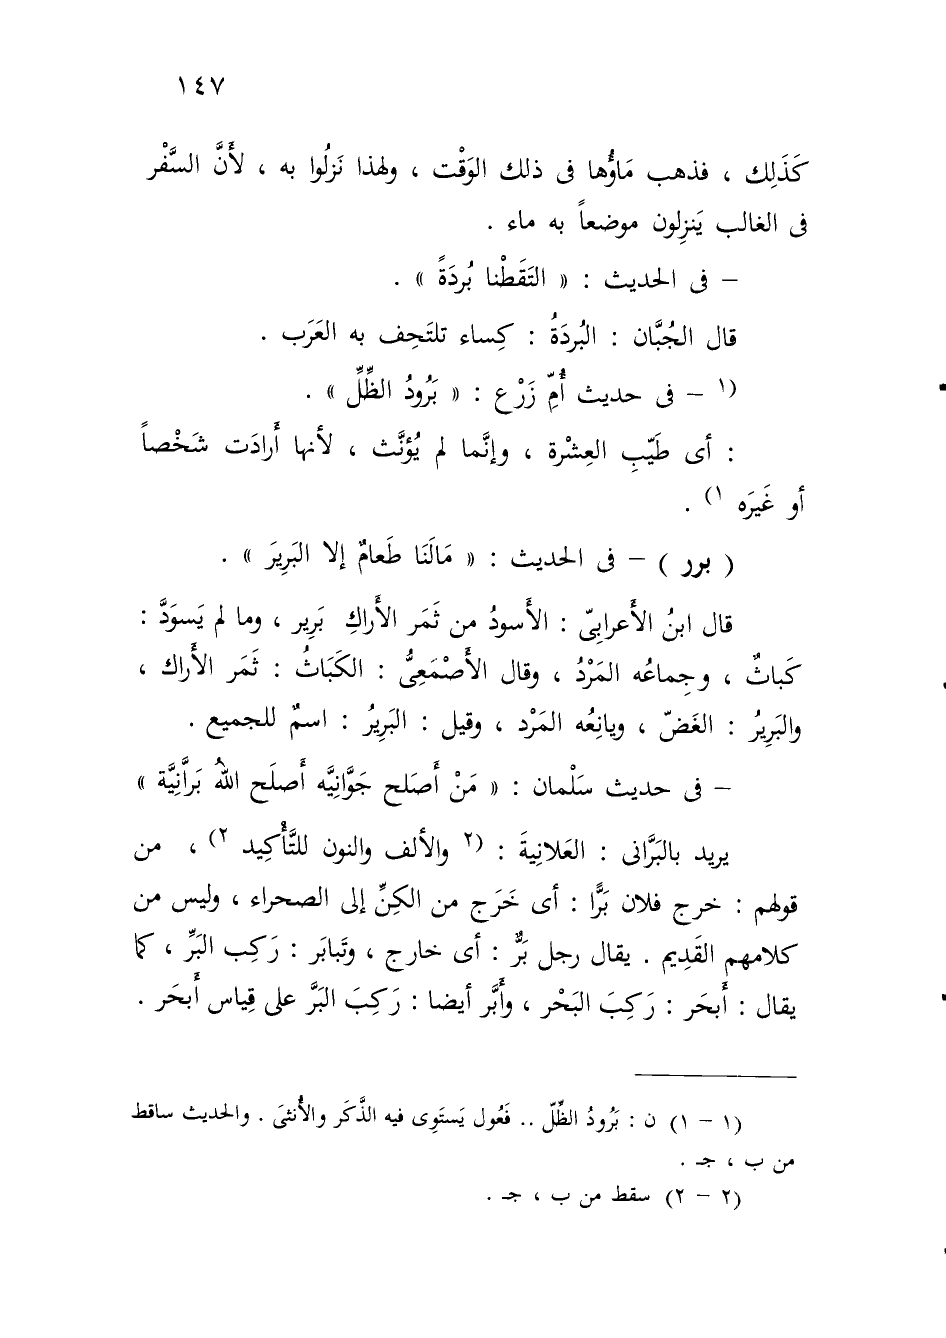 ١٤٧
كَذَلِك ، فذهب مَاؤُها فى ذلك الوَقْت ، ولهذا نَزلُوا به ، لأَنَّ السَّفْر
فى الغالب يَنزِلون موضعاً به ماء .
– فى الحديث : « التَقَطْنا بُردَةً » .
قال الجُبَّان : البُردَةُ : كِساء تلتَحِف به العَرَب .
(١ – فى حديث أُمِّ زَرْع : « بَرُودُ الظِّلِّ » .
: أى طَيّبِ العِشْرة ، وإنَّما لم يُؤنَّث ، لأنها أَرادَت شَخْصاً
أو غَيرَه ١) .
( برر ) – فى الحديث : « مَالَنَا طَعامٌ إلا البَرِيرَ » .
قال ابنُ الأَعرابىّ : الأَسودُ من ثَمَر الأَراكِ بَرِير ، وما لم يَسوَدَّ :
كَباثٌ ، وجِماعُه المَرْدُ ، وقال الأَصْمَعِىُّ : الكَبَاثُ : ثَمَر الأَراك ،
والبَرِيرُ : الغَضّ ، ويانِعُه المَرْد ، وقيل : البَرِيرُ : اسمٌ للجميع .
– فى حديث سَلْمان : « مَنْ أَصَلح جَوَّانِيَّه أَصلَح اللهُ بَرانِيَّة »
يريد بالبَرَّانى : العَلانِيةَ : (٢ والألف والنون للتَّأْكِيد ٢) ، من
قولهم : خرج فلان بَرًّا : أى خَرَج من الكِنِّ إلى الصحراء ، وليس من
كلامهم القَدِيم . يقال رجل بَرٌّ : أى خارج ، وتَبابَر : رَكِب البَرِّ ، كما
يقال : أَبحَر : رَكِبَ البَحْر ، وأَبَّر أيضا : رَكِبَ البَرَّ على قِياس أَبحَر .
(١ – ١) ن : بَرُودُ الظِّلّ .. فَعُول يَستَوِى فيه الذَّكَر والأُنثىَ . والحديث ساقط
من ب ، جـ .
(٢ – ٢) سقط من ب ، جـ .